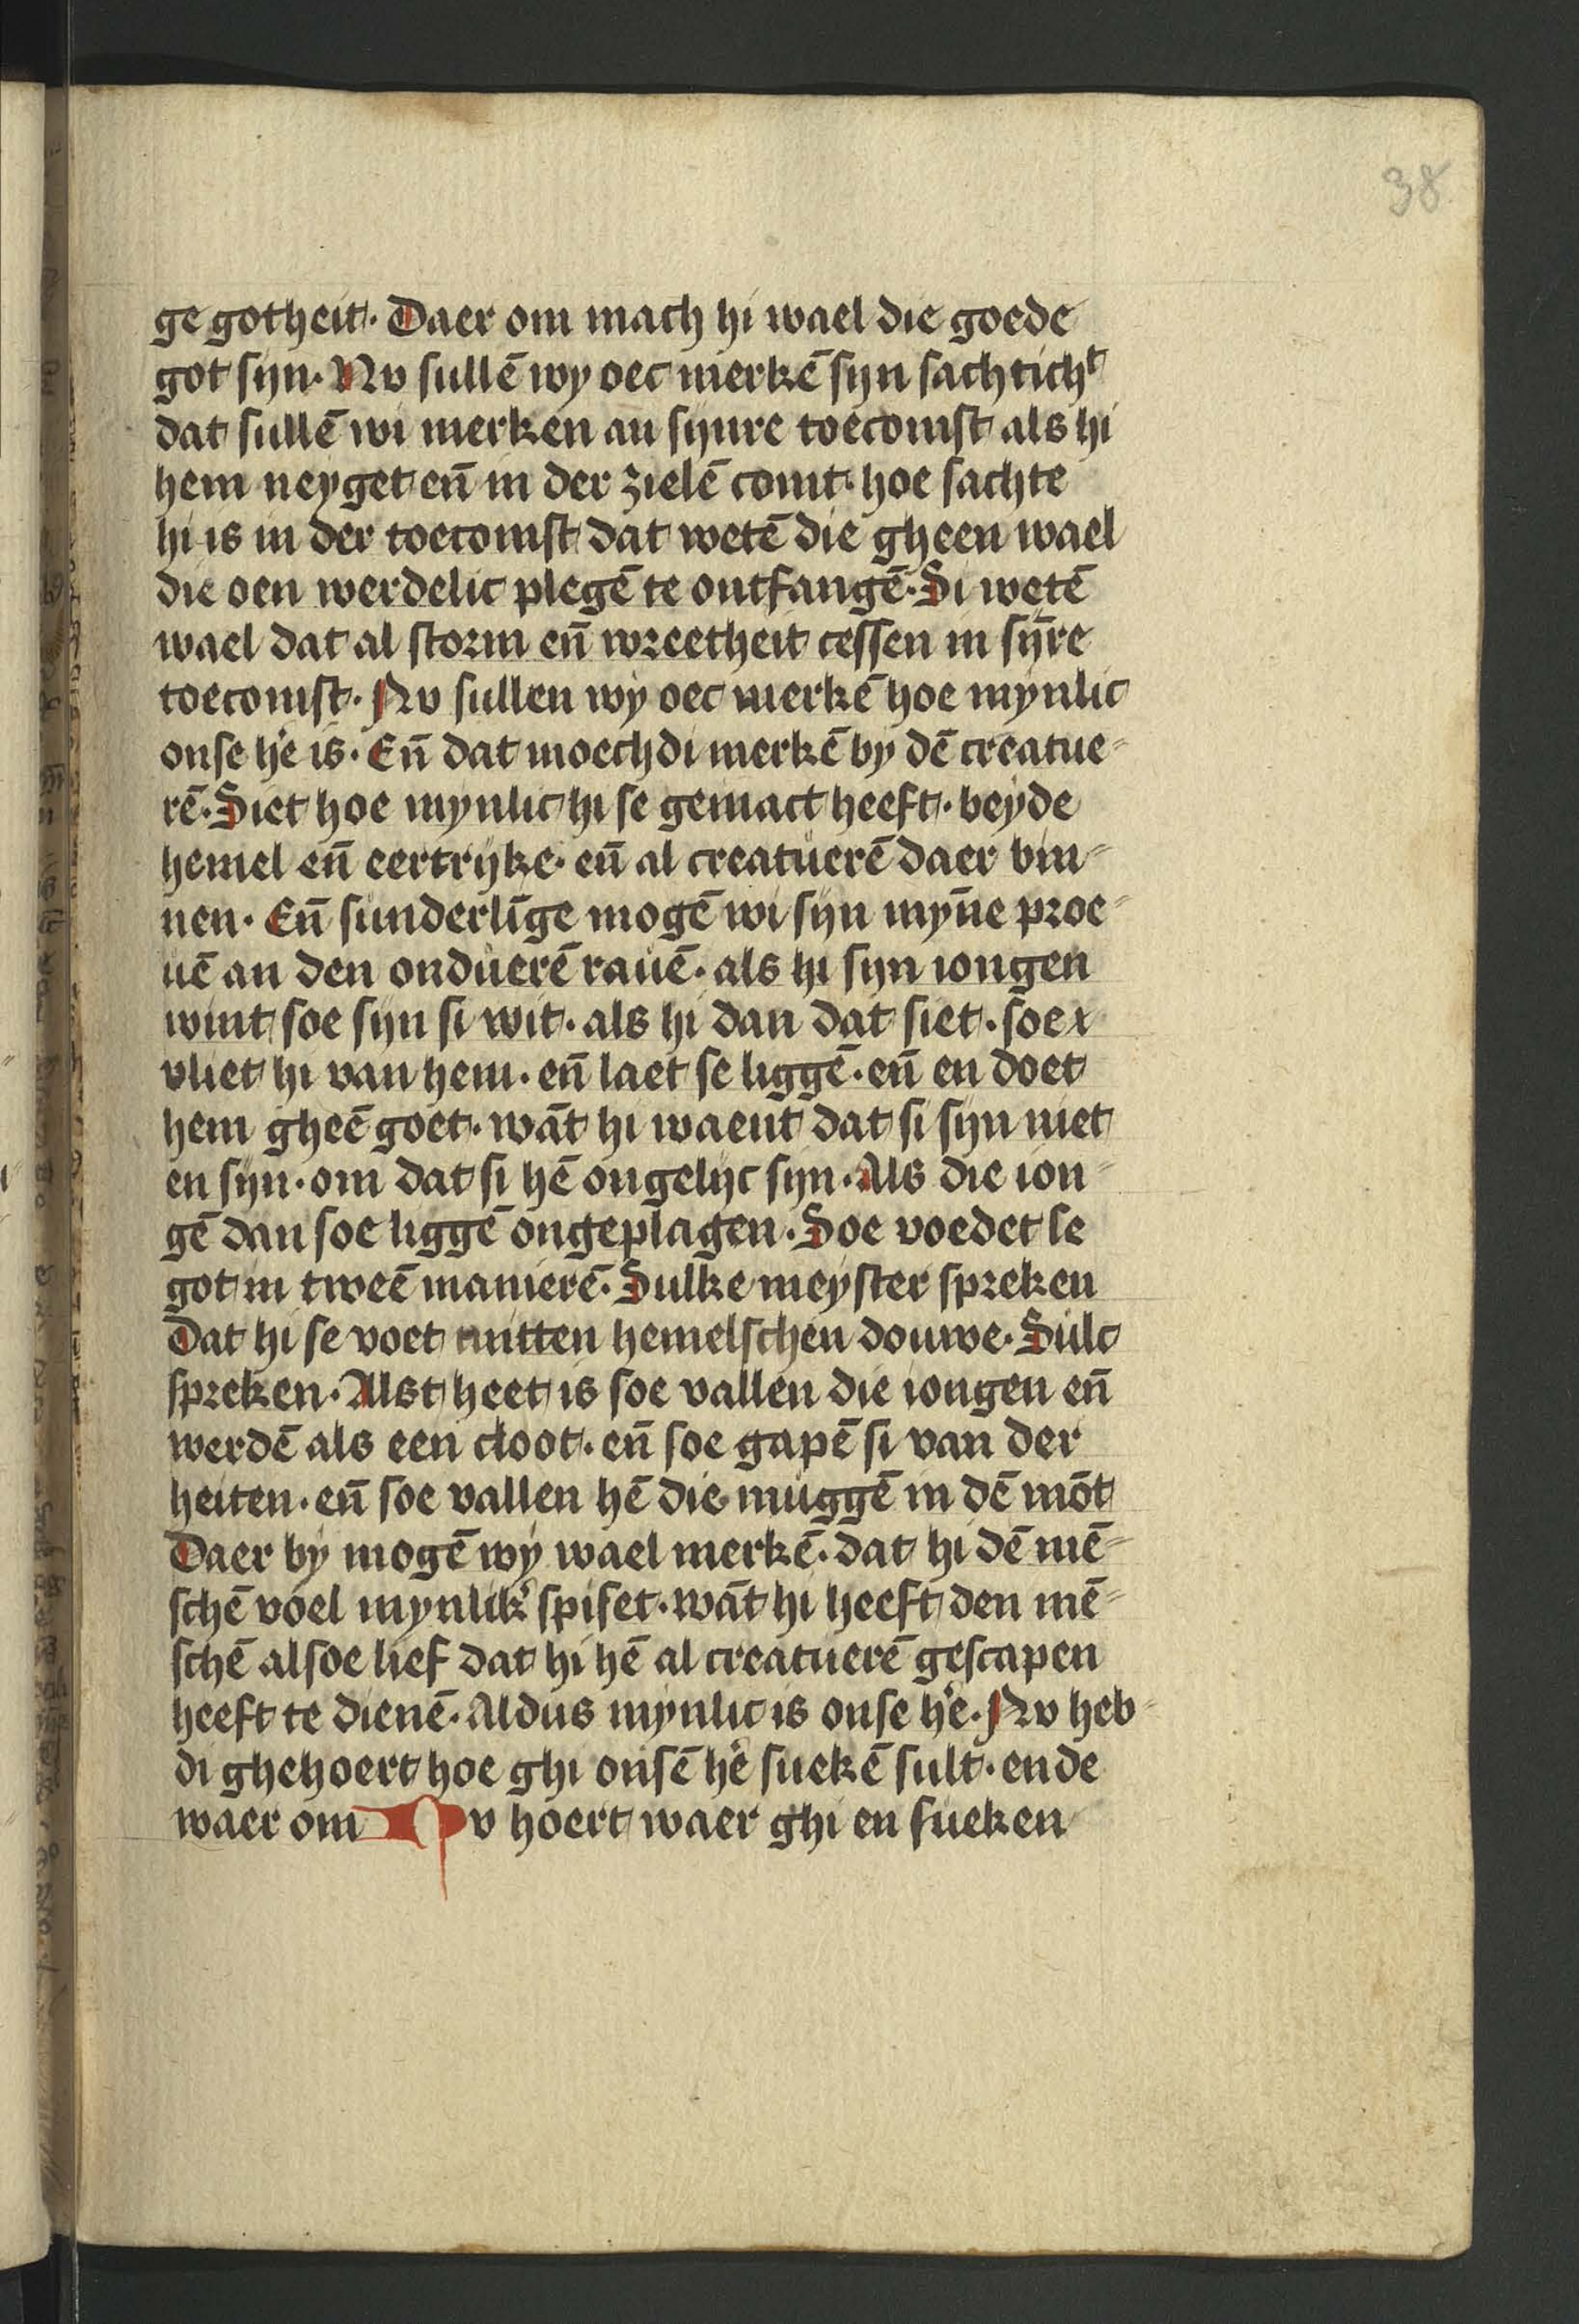 38
ge gotheit. Daer om mach hi wael die goede
got sijn. Nv sullē wy oec merkē sijn sachtichᵗ
dat sullē wi merken an sijnre toecomst als hi
hem neyget en̄ in der zielē comt. hoe sachte
hi is in der toecomst dat wetē die gheen wael
die oen werdelic plegē te ontfangē. Si wetē
wael dat al storm en̄ wreetheit cessen in sȳre
toecomst. Nv sullen wy oec merkē hoe mynlic
onse he is. En̄ dat moechdi merkē by dē creatue=
rē. Siet hoe mynlic hi se gemact heeft. beyde
hemel en̄ eertrijke. en̄ al creatuerē daer bin=
nen. En̄ sunderlīge mogē wi sijn myn̄e proe=
uē an den onduerē rauē. als hi sijn iongen
wint soe sijn si wit. als hi dan dat siet. soe
vliet hi van hem. en̄ laet se liggē. en̄ en doet
hem gheē goet. wāt hi waent dat si sijn niet
en sijn. om dat si hē ongelijc sijn. Als die ion=
gē dan soe liggē ongeplagen. Soe voedet se
got in tweē manierē. Sulke meyster spreken
Dat hi se voet mitten hemelschen douwe. Sulc
spreken. Alst heet is soe vallen die iongen en̄
werdē als een cloot. en̄ soe gapē si van der
heiten. en̄ soe vallen hē die muggē in dē mōt
Daer by mogē wy wael merkē. dat hi dē mē=
schē voel mynlik' spiset. wāt hi heeft den mē=
schē alsoe lief dat hi hē al creatuerē gescapen
heeft te dienē. Aldus mynlic is onse he. Nv heb=
di ghehoert hoe ghi onsē he suekē sult. ende
waer om Nv hoert waer ghi en sueken